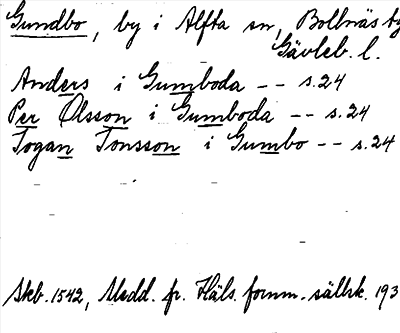 Gundbo, by i Alfta sn, Bollnäs
Gävleb. l.
Anders i Gumboda -- s. 24
Per Olsson i Gumboda -- s. 24
Togan Tonsson i Gumbo -- s. 24
Skb. 1542, Medd. fr. Häls. fornm. sällsk. 193